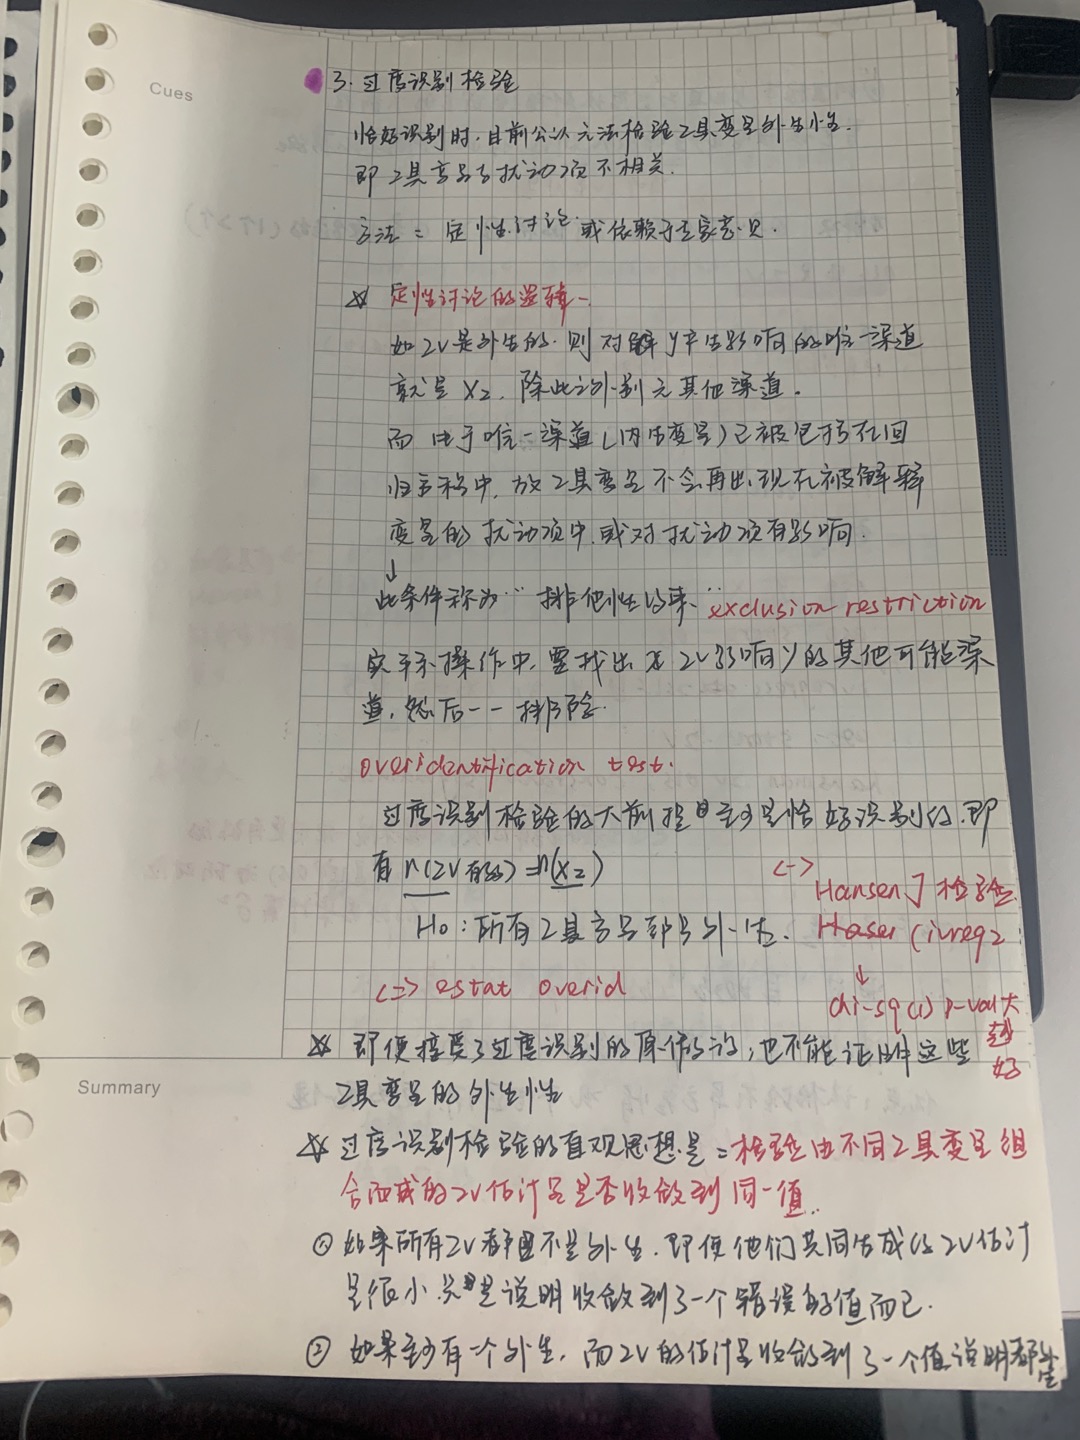 Cues
3. 过度识别检验
恰好识别时,目前公认无法检验工具变量外生性.
即工具变量与扰动项不相关.
方法= 定性讨论 或依赖于专家意见.
☆ 定性讨论的逻辑-
如IV是外生的.则对解y产生影响的唯一渠道
就是X2,除此之外别无其他渠道.
而由于唯一渠道(内生变量)已被包括在回
归方程中,故工具变量不会再出现在被解释
变量的扰动项中.或对扰动项有影响.
↓
此条件称为“排他性约束” exclusion restriction
实际操作中,要找出IV影响y的其他可能渠
道,然后一一排除.
overidentification test.
过度识别检验的大前提是至少是恰好识别的.即
有n(IV有的)=n(X2)
<-> Hansen J 检验
H0:所有工具变量都是外生. Hasen (ivreg2:
<=> estat overid
↓
chi-sq(1) P-val大
越好
☆ 即便接受了过度识别的原假设,也不能证明这些
工具变量的外生性
Summary
☆ 过度识别检验的直观思想是=检验由不同工具变量组
合而成的IV估计是否收敛到同一值.
① 如果所有IV都不是外生.即便他们共同生成的IV估计
是很小 只是说明收敛到了一个错误的值而已.
② 如果至少有一个外生,而IV的估计量收敛到了一个值说明都外生